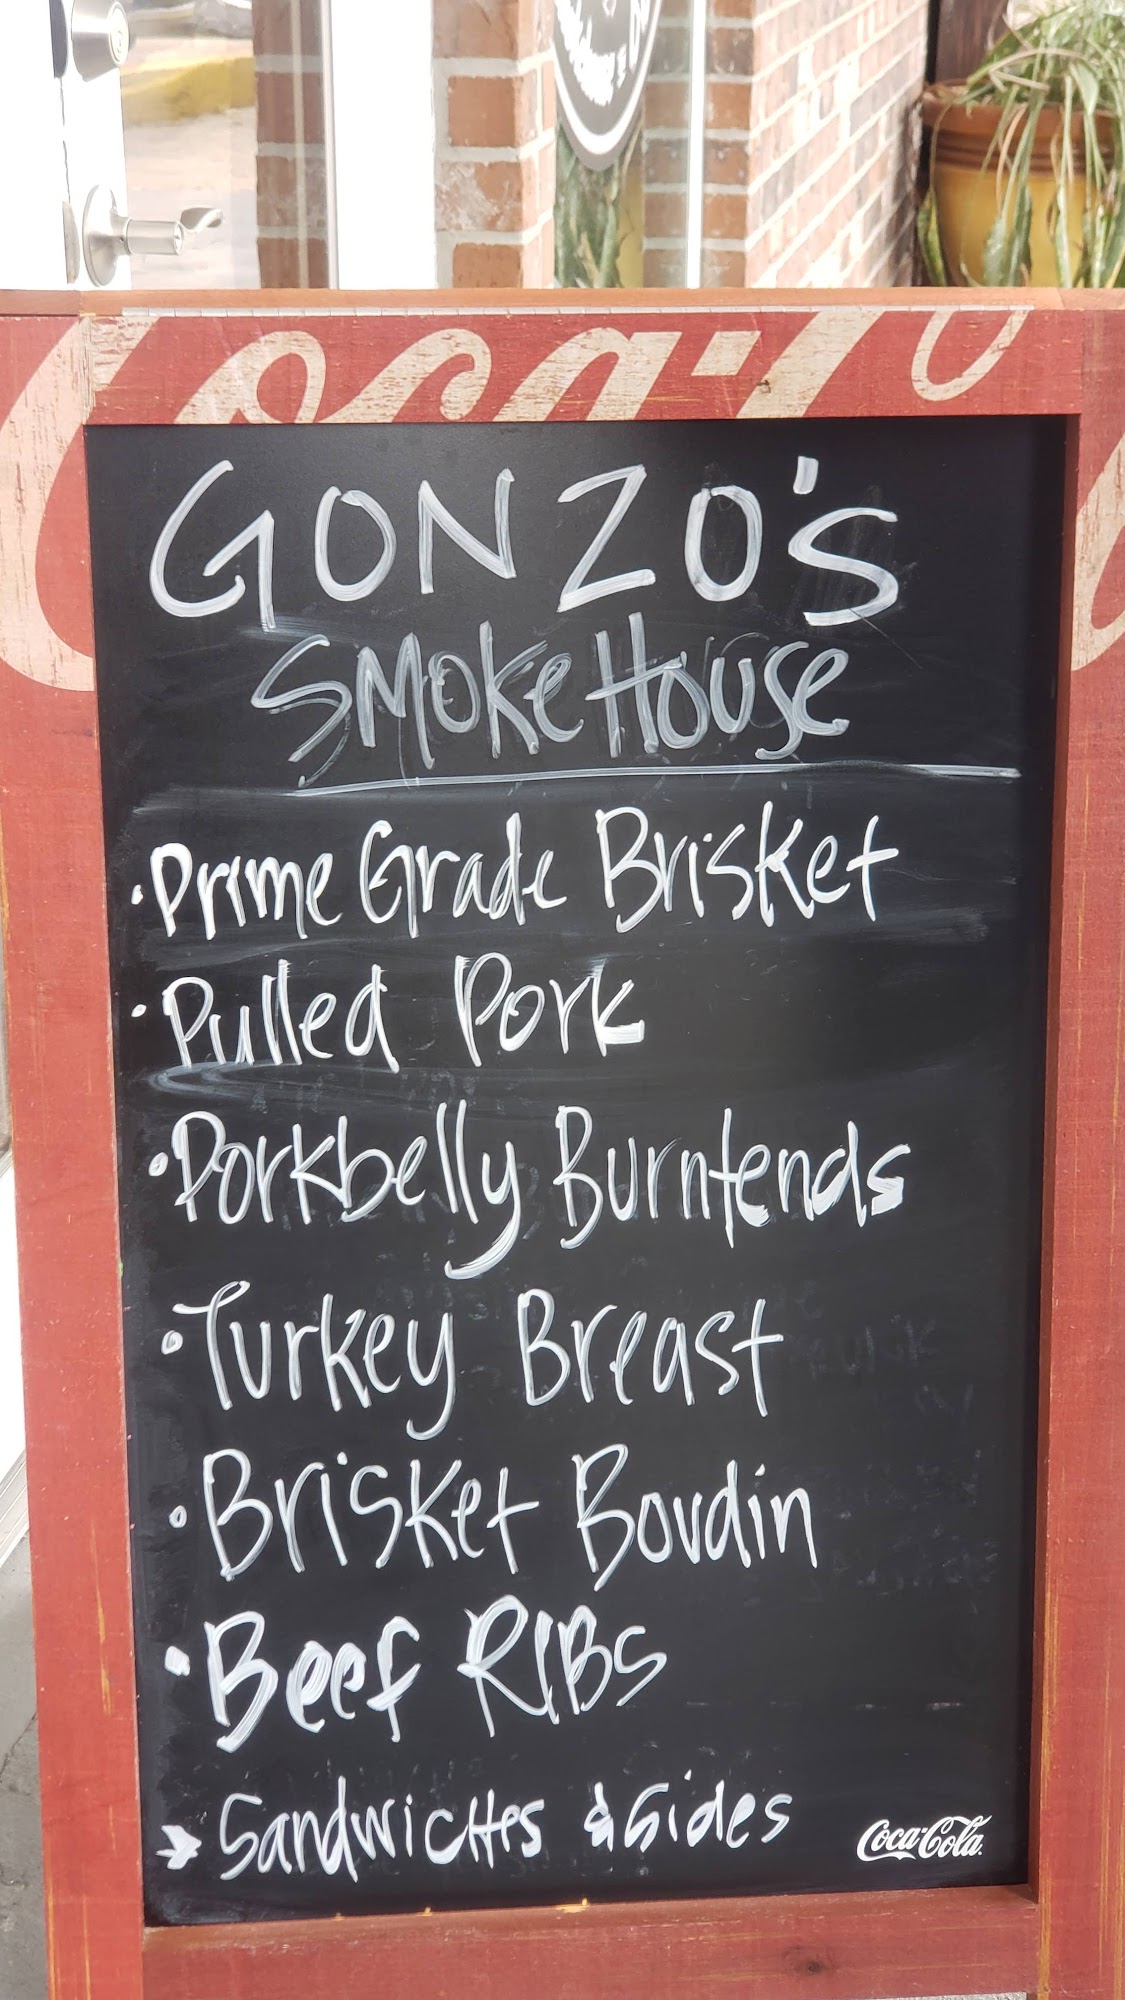 Coca-Co
GONZO's
SMOKEHOUSE
• Prime Grade Brisket
• Pulled Pork
• Porkbelly Burntends
• Turkey Breast
• Brisket Boudin
• Beef RIBS
→ Sandwiches & Sides
Coca-Cola